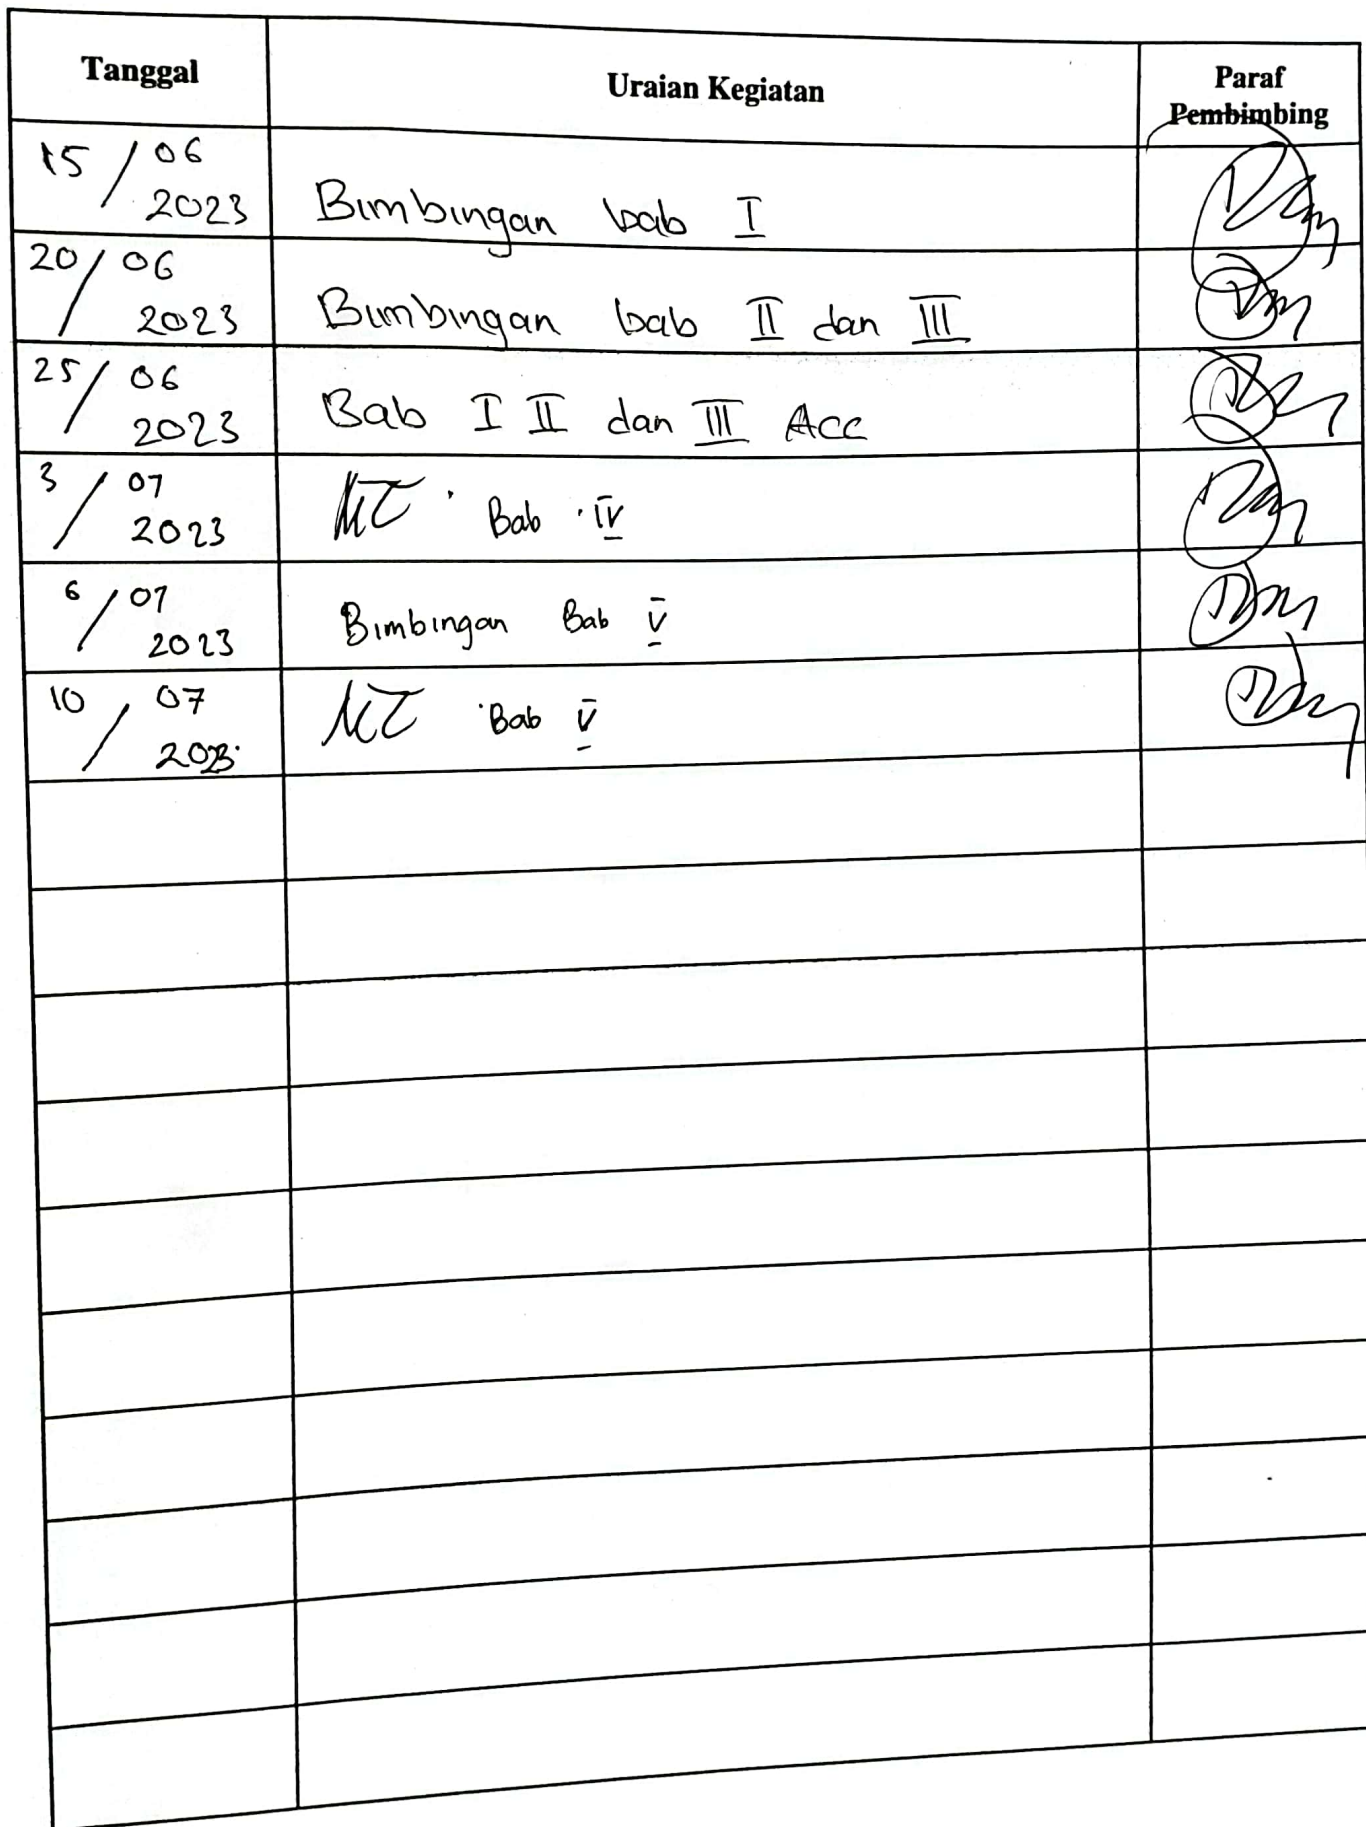 Tanggal Uraian Kegiatan Paraf
Pembimbing
15 / 06
2023 Bimbingan bab I
20 / 06
2023 Bimbingan bab II dan III
25 / 06
2023 Bab I II dan III Acc
3 / 07
2023 Bab IV
6 / 07
2023 Bimbingan Bab V
10 / 07
2023 Bab V